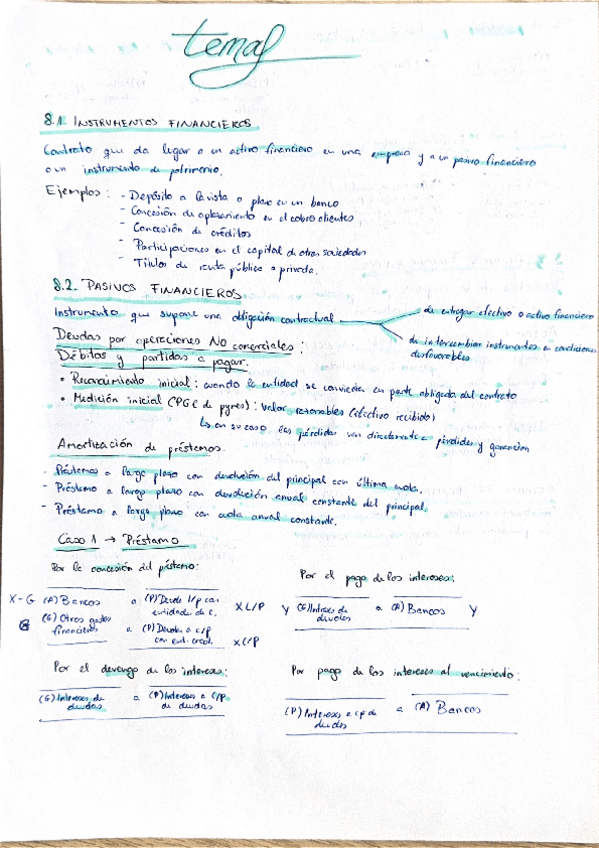 tema 8
8.1. INSTRUMENTOS FINANCIEROS
Contrato que da lugar a un activo financiero en una empresa y a un pasivo financiero
o un instrumento de patrimonio.
Ejemplos: - Depósito a la vista o plazo en un banco
- Concesión de aplazamiento en el cobro clientes
- Concesión de créditos
- Participaciones en el capital de otras sociedades
- Títulos de renta pública o privada.
8.2. PASIVOS FINANCIEROS
Instrumento que supone una obligación contractual
de entregar efectivo o activo financiero
de intercambiar instrumentos en condiciones
desfavorables
Deudas por operaciones NO comerciales:
Débitos y partidas a pagar.
• Reconocimiento inicial: cuando la entidad se convierta en parte obligada del contrato
• Medición inicial (PGC de pymes): valor razonable (efectivo recibido)
↳ en su caso las pérdidas van directamente a pérdidas y ganancias
Amortización de préstamos.
- Préstamos a largo plazo con devolución del principal con última cuota.
- Préstamo a largo plazo con devolución anual constante del principal.
- Préstamo a largo plazo con cuota anual constante.
Caso 1 → Préstamo
Por la concesión del préstamo:
X-G (A) Bancos a (P) Deuda l/p con
entidades de c. X L/P
G (G) Otros gastos
financieros a (P) Deudas a c/p
con ent. cred. X C/P
Por el pago de los intereses:
Y (G) Intereses de
deudas a (A) Bancos Y
Por el devengo de los intereses:
(G) Intereses de
deudas a (P) Intereses a c/p
de deudas
Por pago de los intereses al vencimiento:
(P) Intereses a cp de
deudas a (A) Bancos